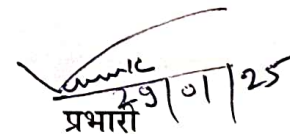 29/01/25
प्रभारी